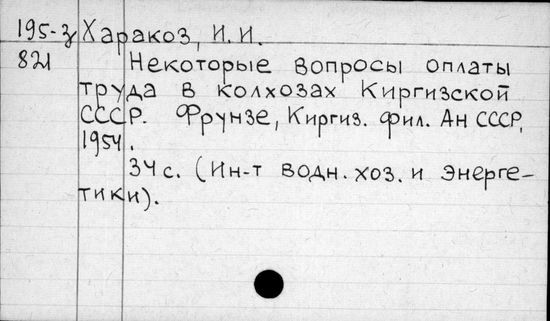 195-з Харакоз, И. И.
821 Некоторые вопросы оплаты
труда в колхозах Киргизской
СССР. Фрунзе, Киргиз. фил. Ан СССР,
1954.
34 с. (Ин-т водн. хоз. и энерге-
тики).